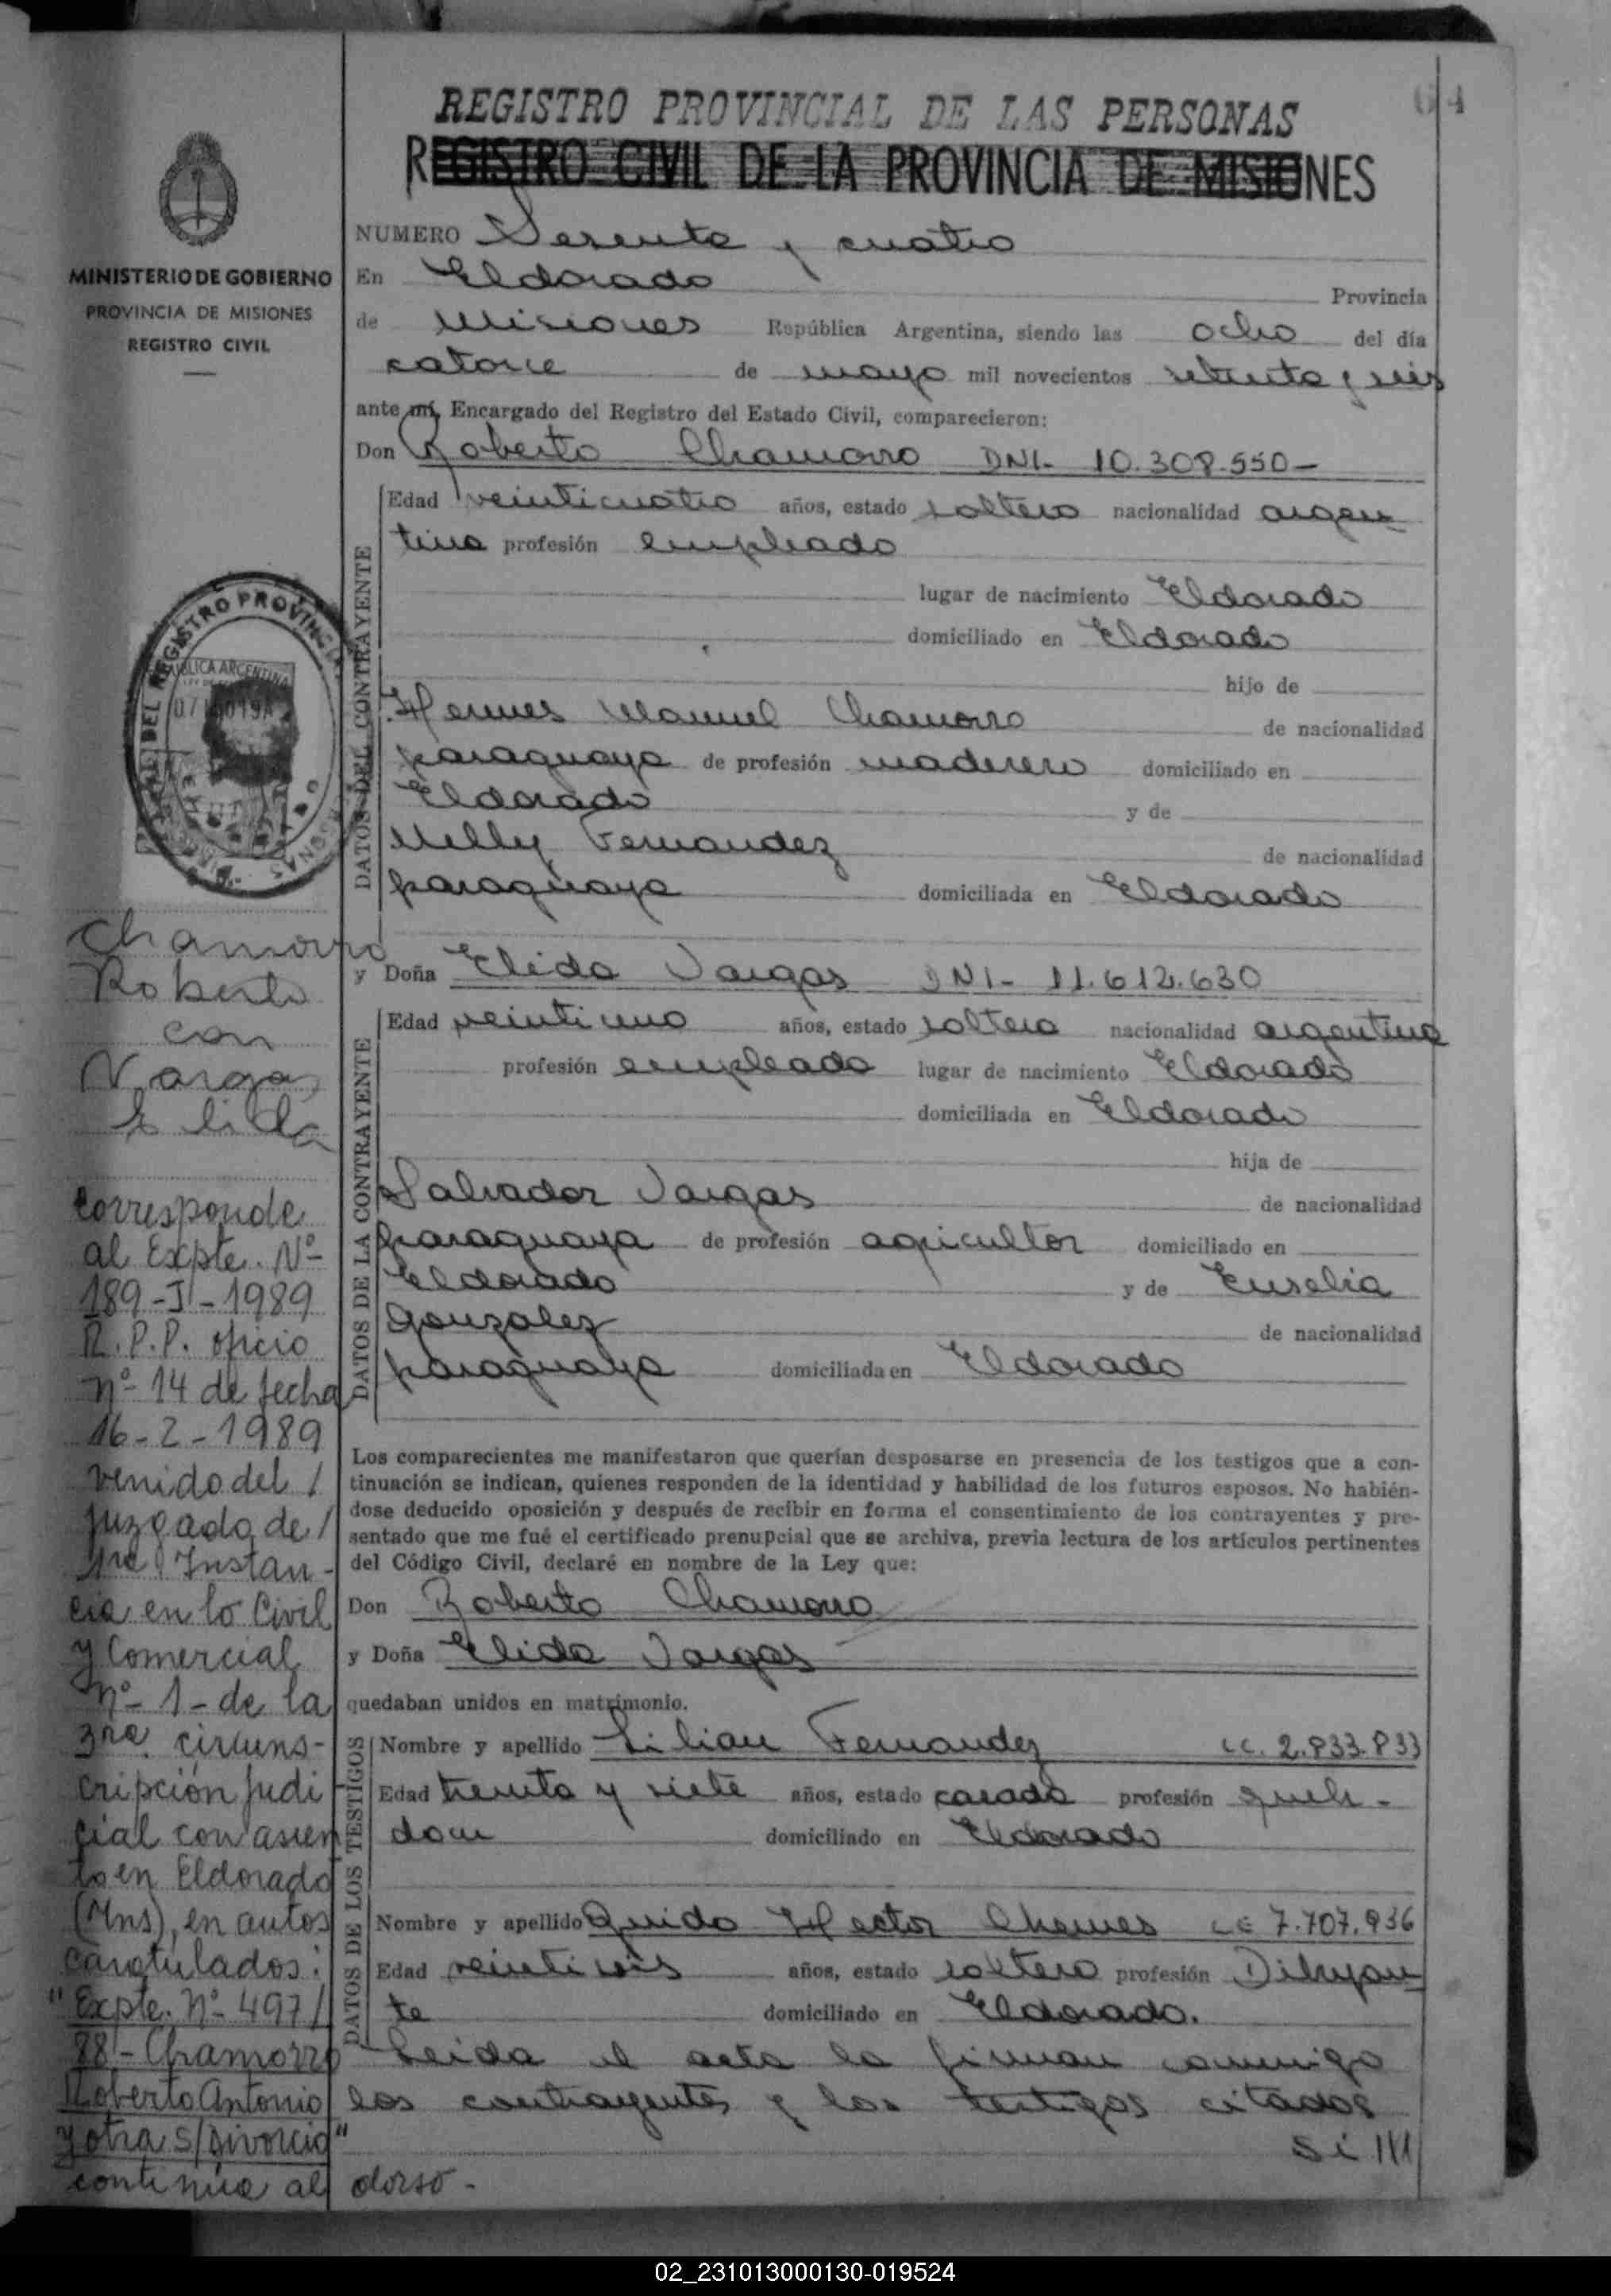 64
REGISTRO PROVINCIAL DE LAS PERSONAS
REGISTRO CIVIL DE LA PROVINCIA DE MISIONES
MINISTERIO DE GOBIERNO
PROVINCIA DE MISIONES
REGISTRO CIVIL
NUMERO Sesenta y cuatro
En Eldorado Provincia
de Misiones República Argentina, siendo las ocho del día
catorce de mayo mil novecientos setenta y seis
ante mí, Encargado del Registro del Estado Civil, comparecieron:
Don Roberto Chamorro DNI- 10.308.550-
DATOS DEL CONTRAYENTE
Edad veinticuatro años, estado soltero nacionalidad argen-
tina profesión empleado
lugar de nacimiento Eldorado
domiciliado en Eldorado
hijo de
Hermes Manuel Chamorro de nacionalidad
paraguaya de profesión maderero domiciliado en
Eldorado y de
Nelly Fernandez de nacionalidad
paraguaya domiciliada en Eldorado
y Doña Elida Vargas DNI- 11.612.630
DATOS DE LA CONTRAYENTE
Edad veintiuno años, estado soltera nacionalidad argentina
profesión empleada lugar de nacimiento Eldorado
domiciliada en Eldorado
hija de
Salvador Vargas de nacionalidad
paraguaya de profesión agricultor domiciliado en
Eldorado y de Euselia
Gonzalez de nacionalidad
paraguaya domiciliada en Eldorado
Los comparecientes me manifestaron que querían desposarse en presencia de los testigos que a con-
tinuación se indican, quienes responden de la identidad y habilidad de los futuros esposos. No habién-
dose deducido oposición y después de recibir en forma el consentimiento de los contrayentes y pre-
sentado que me fué el certificado prenupcial que se archiva, previa lectura de los artículos pertinentes
del Código Civil, declaré en nombre de la Ley que:
Don Roberto Chamorro
y Doña Elida Vargas
quedaban unidos en matrimonio.
DATOS DE LOS TESTIGOS
Nombre y apellido Lilian Fernandez LC. 2.833.833
Edad treinta y siete años, estado casada profesión queh-
dom domiciliado en Eldorado
Nombre y apellido Guido Hector Chemes LE 7.707.936
Edad veintiseis años, estado soltero profesión Dibujan-
te domiciliado en Eldorado.
Leida el acta la firman conmigo
los contrayentes y los testigos citados
Si
DEL REGISTRO PROVINC
REPUBLICA ARGENTINA
Chamorro
Roberto
con
Vargas
Elida
corresponde
al Expte. Nº
189-J-1989
R.P.P. oficio
nº 14 de fecha
16-2-1989
venido del /
juzgado de /
1ra Instan-
cia en lo Civil
y Comercial
nº 1- de la
3ra. circuns-
cripción Judi
cial con asien
to en Eldorado
(Mns), en autos
caratulados:
"Expte. Nº 497/
88- Chamorro
Roberto Antonio
y otra s/Divorcio"
continúa al dorso-
02_231013000130-019524